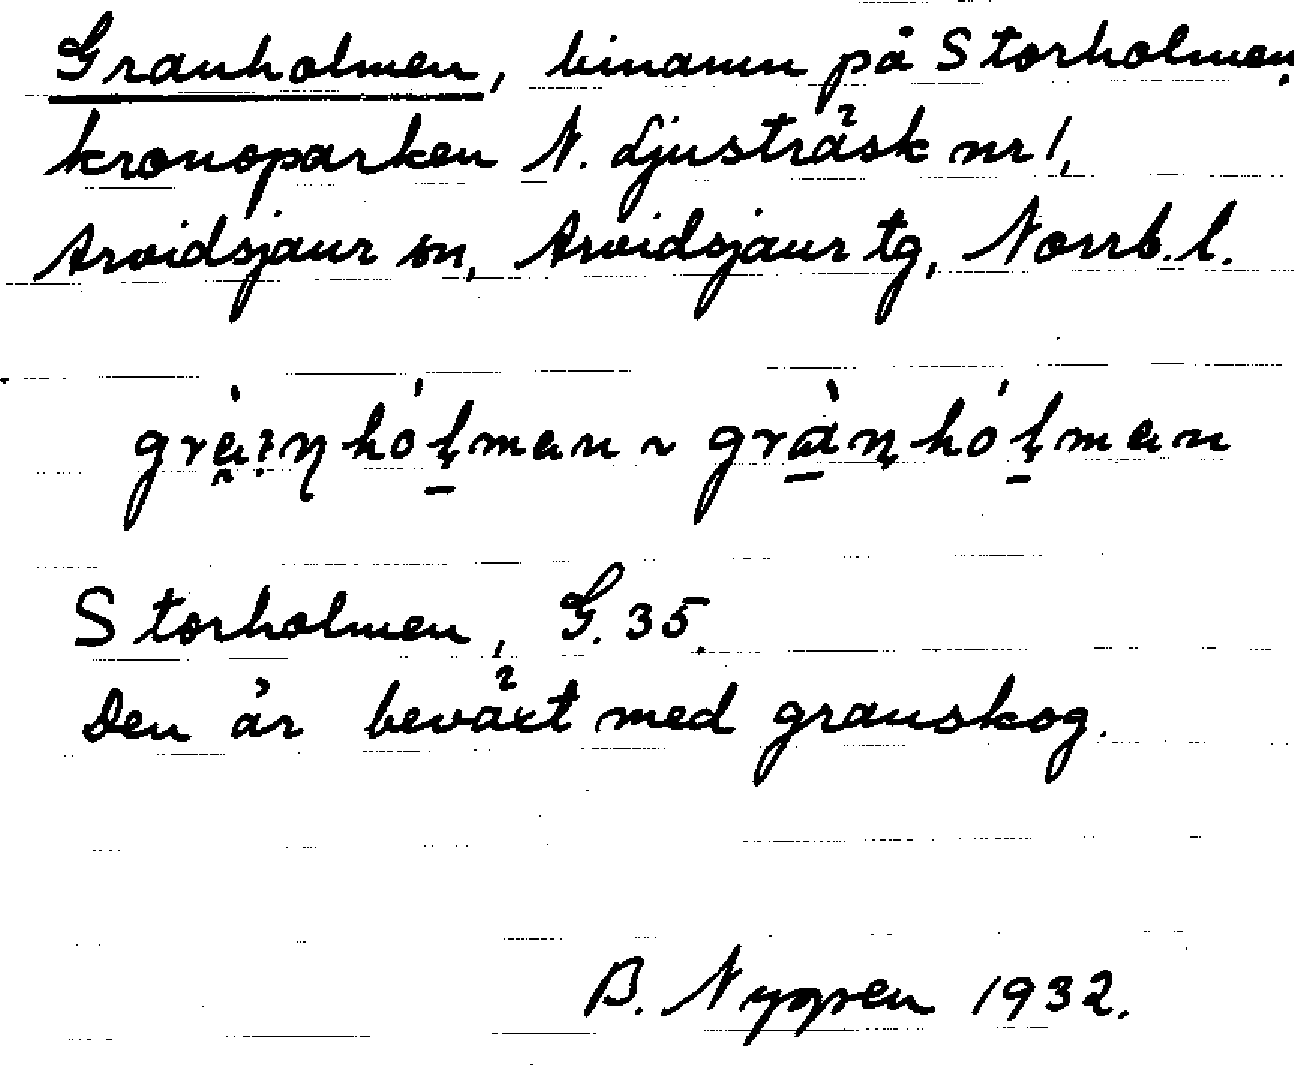 Granholmen, binamn på Storholmen,
kronoparken N. Ljusträsk nr 1,
Arvidsjaur sn, Arvidsjaur tg, Norrb. l.
Storholmen, G. 35.
Den är beväxt med granskog.
B. Nygren 1932.